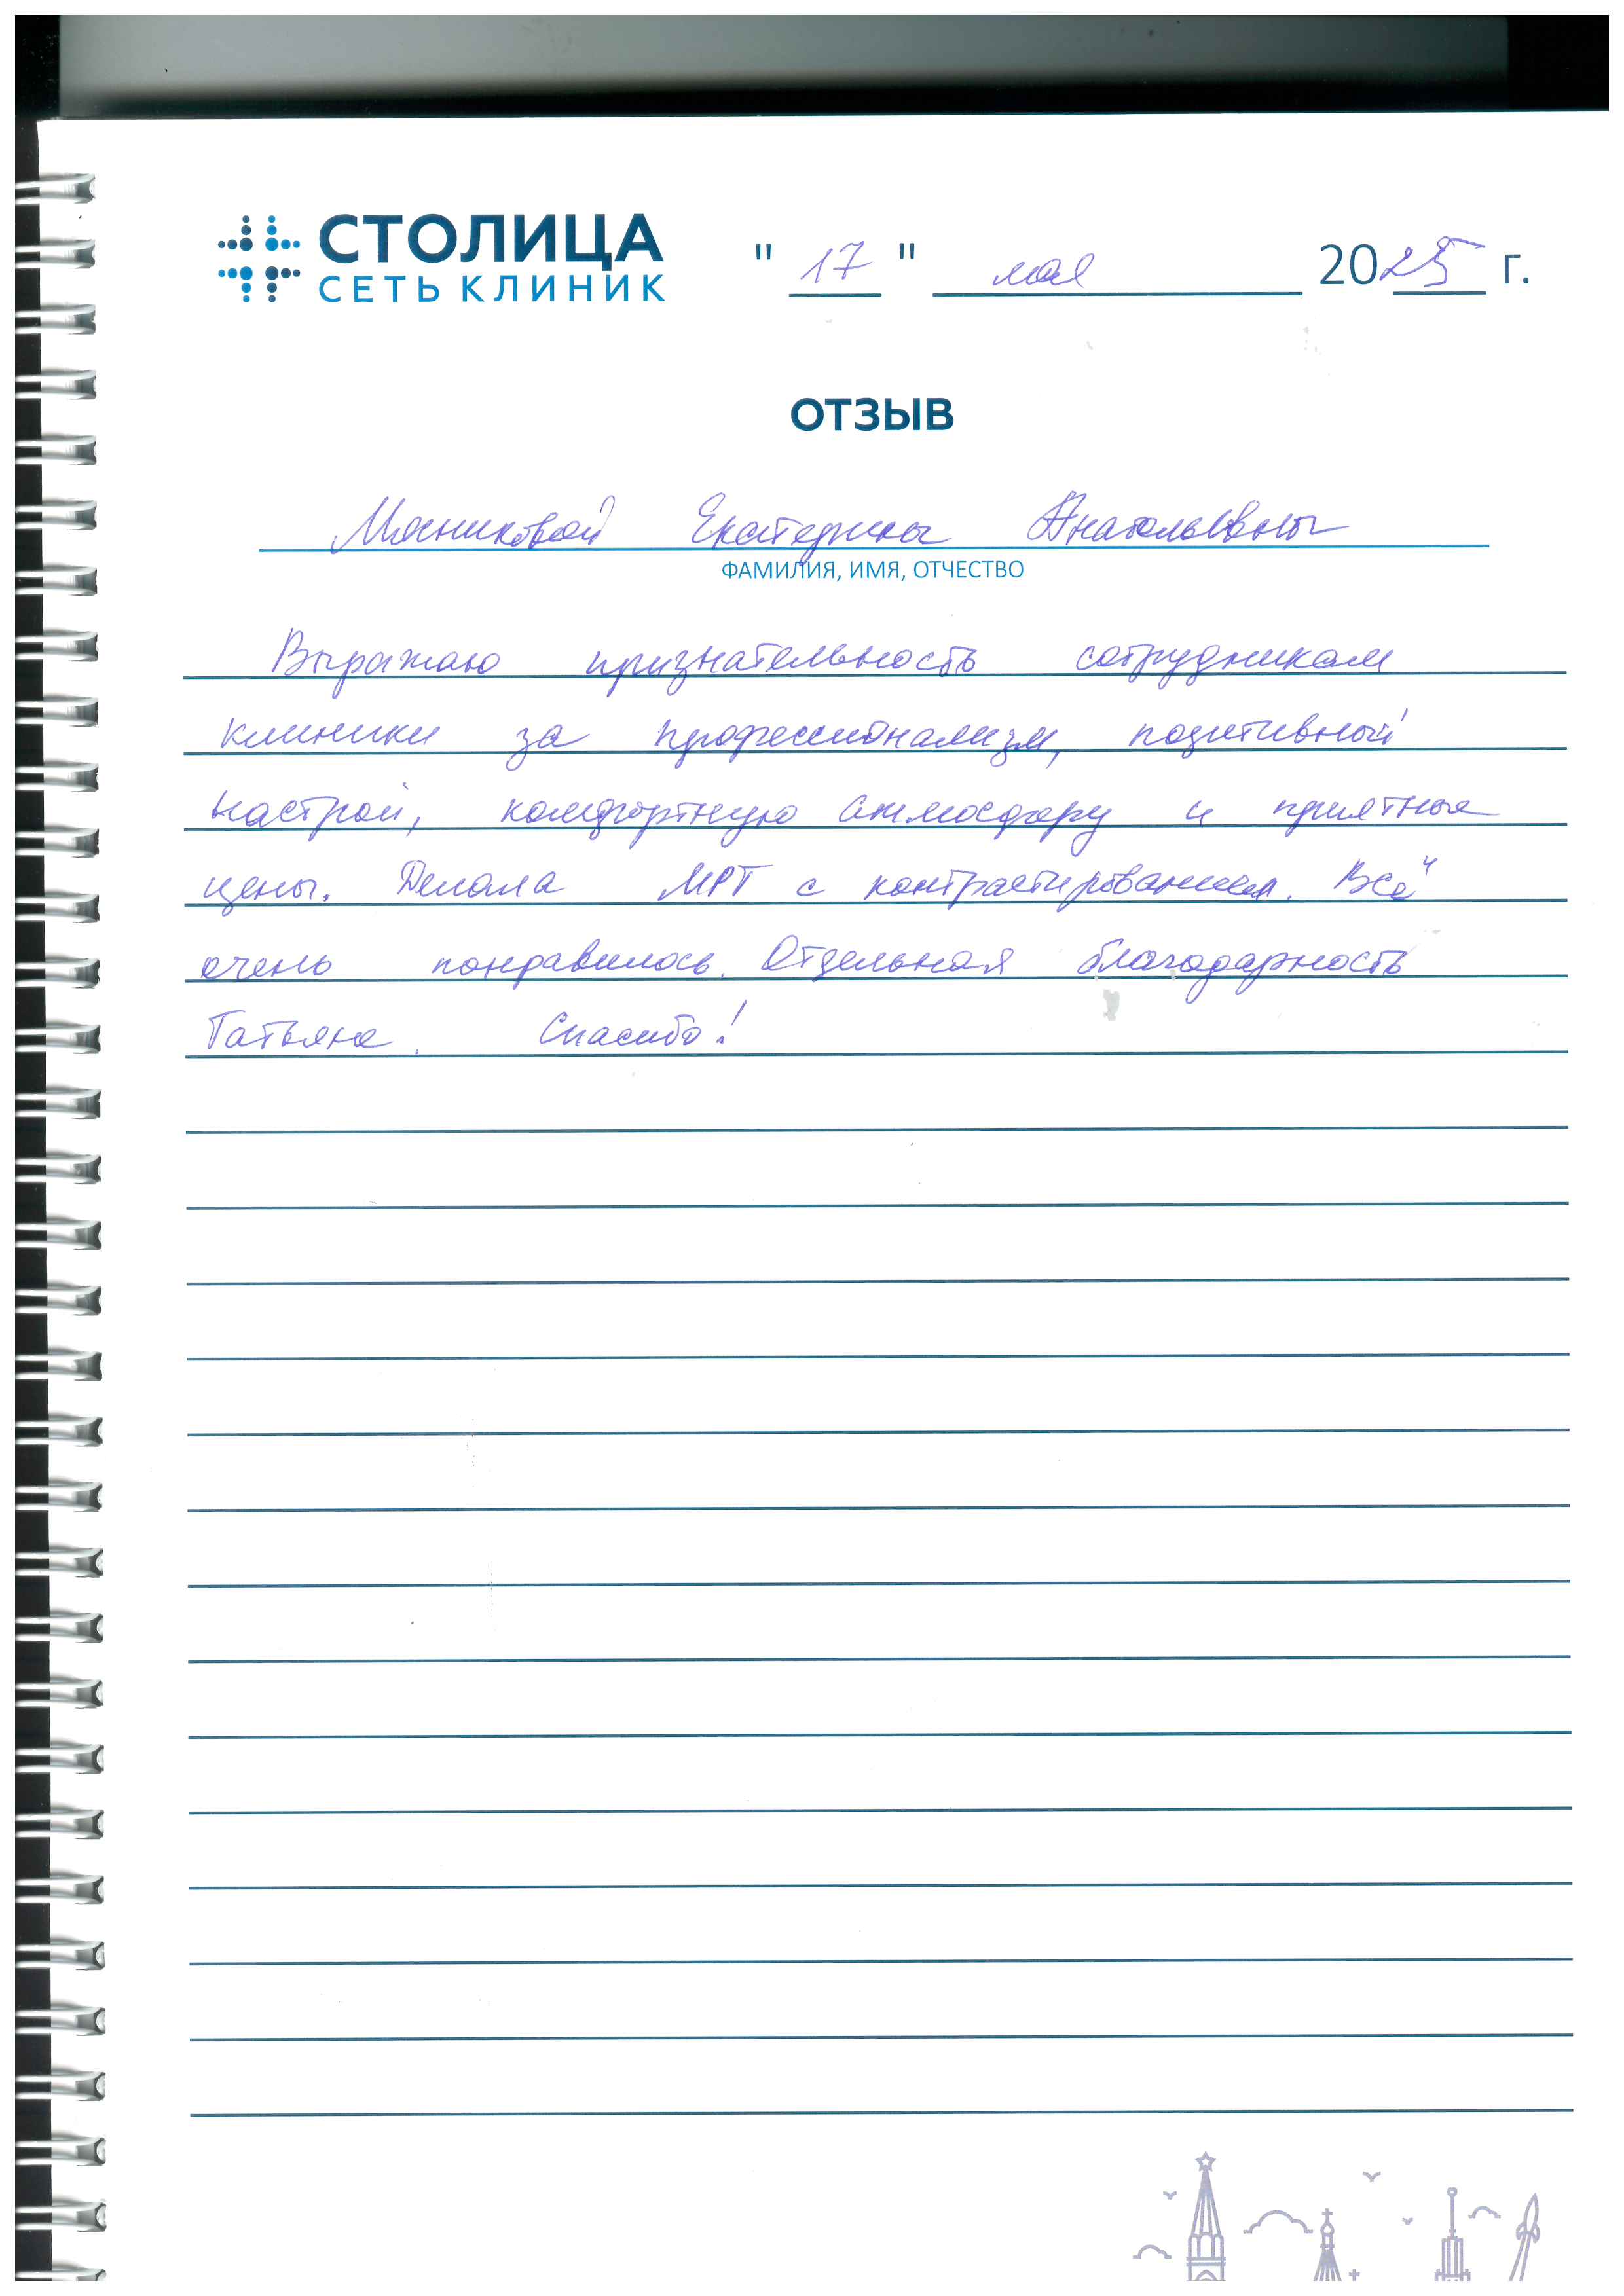 СТОЛИЦА
СЕТЬ КЛИНИК
" 17 " мая 2025 г.
ОТЗЫВ
Мясниковой Екатерины Анатольевны
ФАМИЛИЯ, ИМЯ, ОТЧЕСТВО
Выражаю признательность сотрудникам
клиники за профессионализм, позитивный
настрой, комфортную атмосферу и приятные
цены. Делала МРТ с контрастированием. Всё
очень понравилось. Отдельная благодарность
Татьяне. Спасибо!